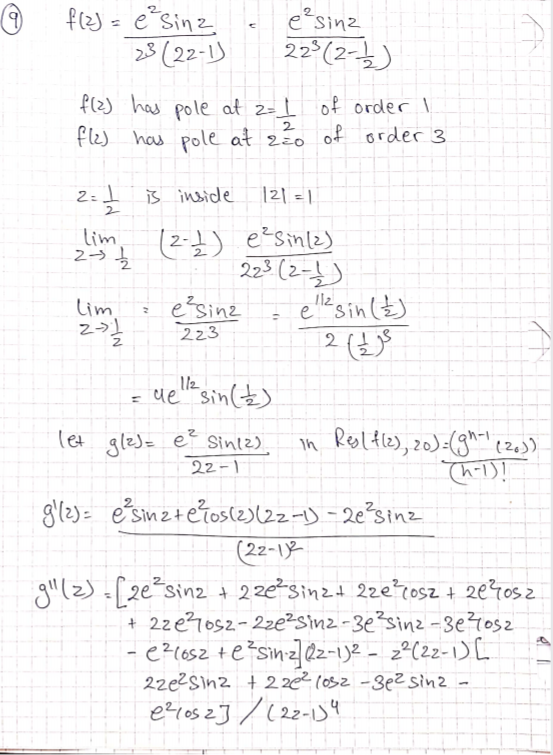 9 f(z) = e^z sin z / z^3 (2z-1) = e^z sin z / 2z^3 (z-1/2)
f(z) has pole at z=1/2 of order 1
f(z) has pole at z=0 of order 3
z=1/2 is inside |z|=1
lim z→1/2 (z-1/2) e^z sin(z) / 2z^3 (z-1/2)
lim z→1/2 = e^z sin z / 2z^3 = e^1/2 sin(1/2) / 2(1/2)^3
= 4e^1/2 sin(1/2)
let g(z) = e^z sin(z) / 2z-1 in Res(f(z), z0) = (g^n-1 (z0)) / (n-1)!
g'(z) = e^z sin z + e^z cos(z)(2z-1) - 2e^z sin z / (2z-1)^2
g''(z) = [2e^z sin z + 2ze^z sin z + 2ze^z cos z + 2e^z cos z
+ 2ze^z cos z - 2ze^z sin z - 3e^z sin z - 3e^z cos z
- e^z cos z + e^z sin z](2z-1)^2 - 2^2(2z-1)[
2ze^z sin z + 2ze^z cos z - 3e^z sin z -
e^z cos z] / (2z-1)^4